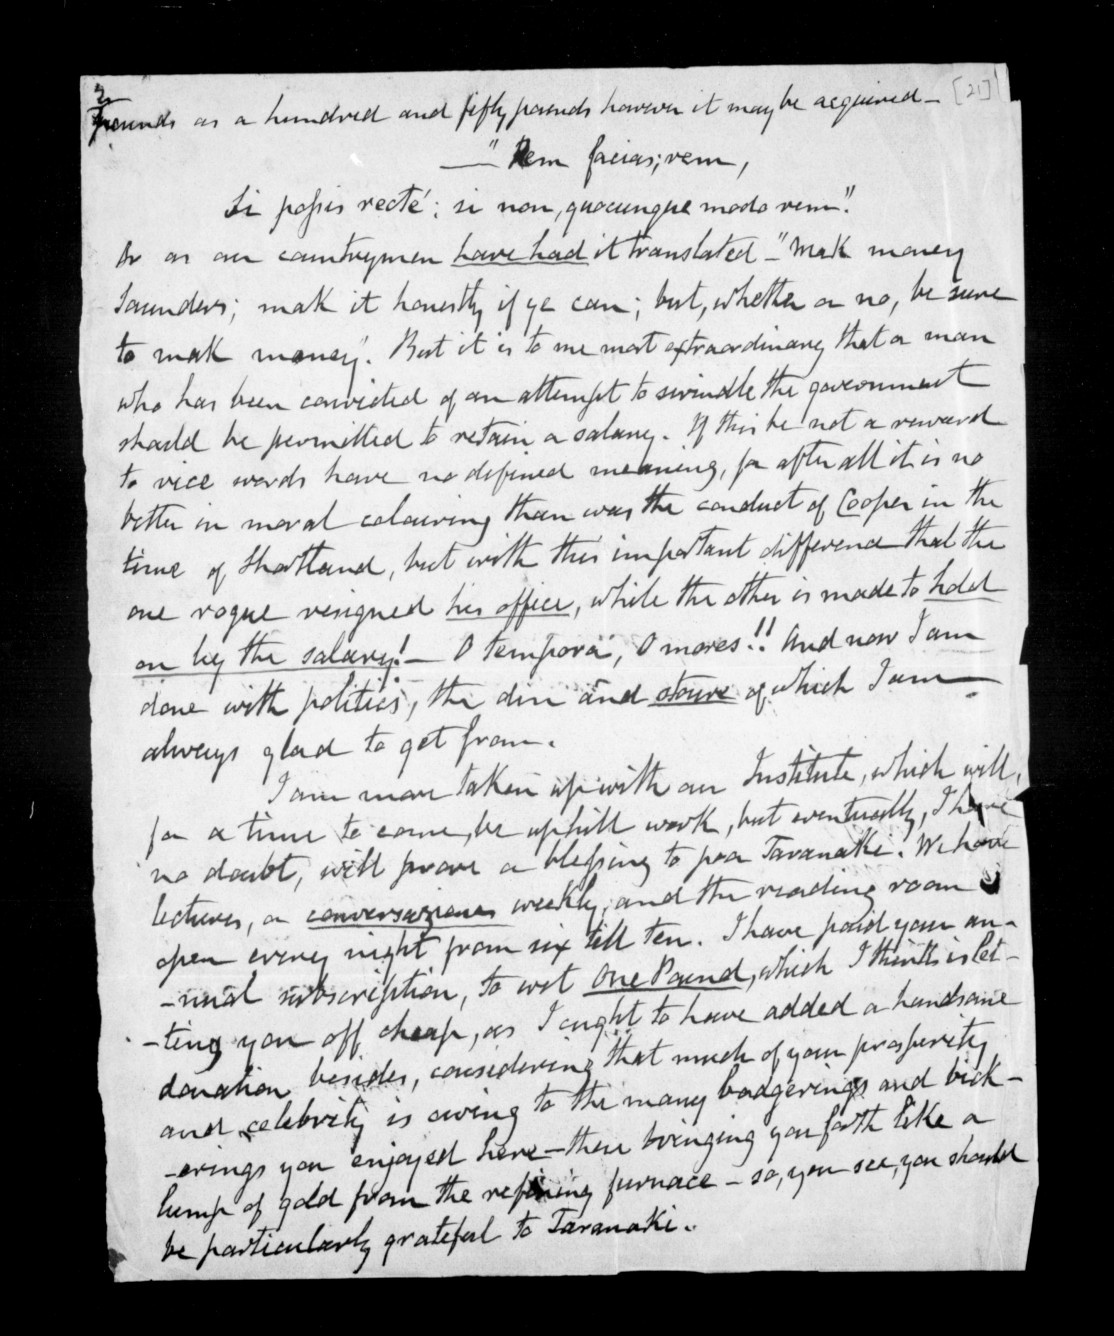 [21]
2
pounds as a hundred and fifty pounds however it may be acquired—
—" Rem facias; rem,
Si possis recté: si non, quocunque modo rem".
Or as our countrymen have had it translated—"Mak money
Saunders; mak it honestly if ye can; but, whether or no, be sure
to mak money". But it is to me most extraordinary that a man
who has been convicted of an attempt to swindle the government
should be permitted to retain a salary. If this be not a reward
to vice words have no defined meaning, for after all it is no
better in moral colouring than was the conduct of Cooper in the
time of Shortland, but with this important difference that the
one rogue resigned his office, while the other is made to hold
on by the salary!— O tempora, O mores!! And now I am
done with politics, the din and stour of which I am
always glad to get from.
I am more taken up with our Institute, which will,
for a time to come, be uphill work, but eventually, I have
no doubt, will prove a blessing to poor Taranaki. We have
lectures, a conversazione weekly, and the reading room
open every night from six till ten. I have paid your an-
-nual subscription, to wit One Pound, which I think is let-
-ting you off cheap, as I ought to have added a handsome
donation besides, considering that much of your prosperity
and celebrity is owing to the many badgerings and bick-
-erings you enjoyed here—then bringing you forth like a
lump of gold from the refining furnace—so, you see, you should
be particularly grateful to Taranaki.